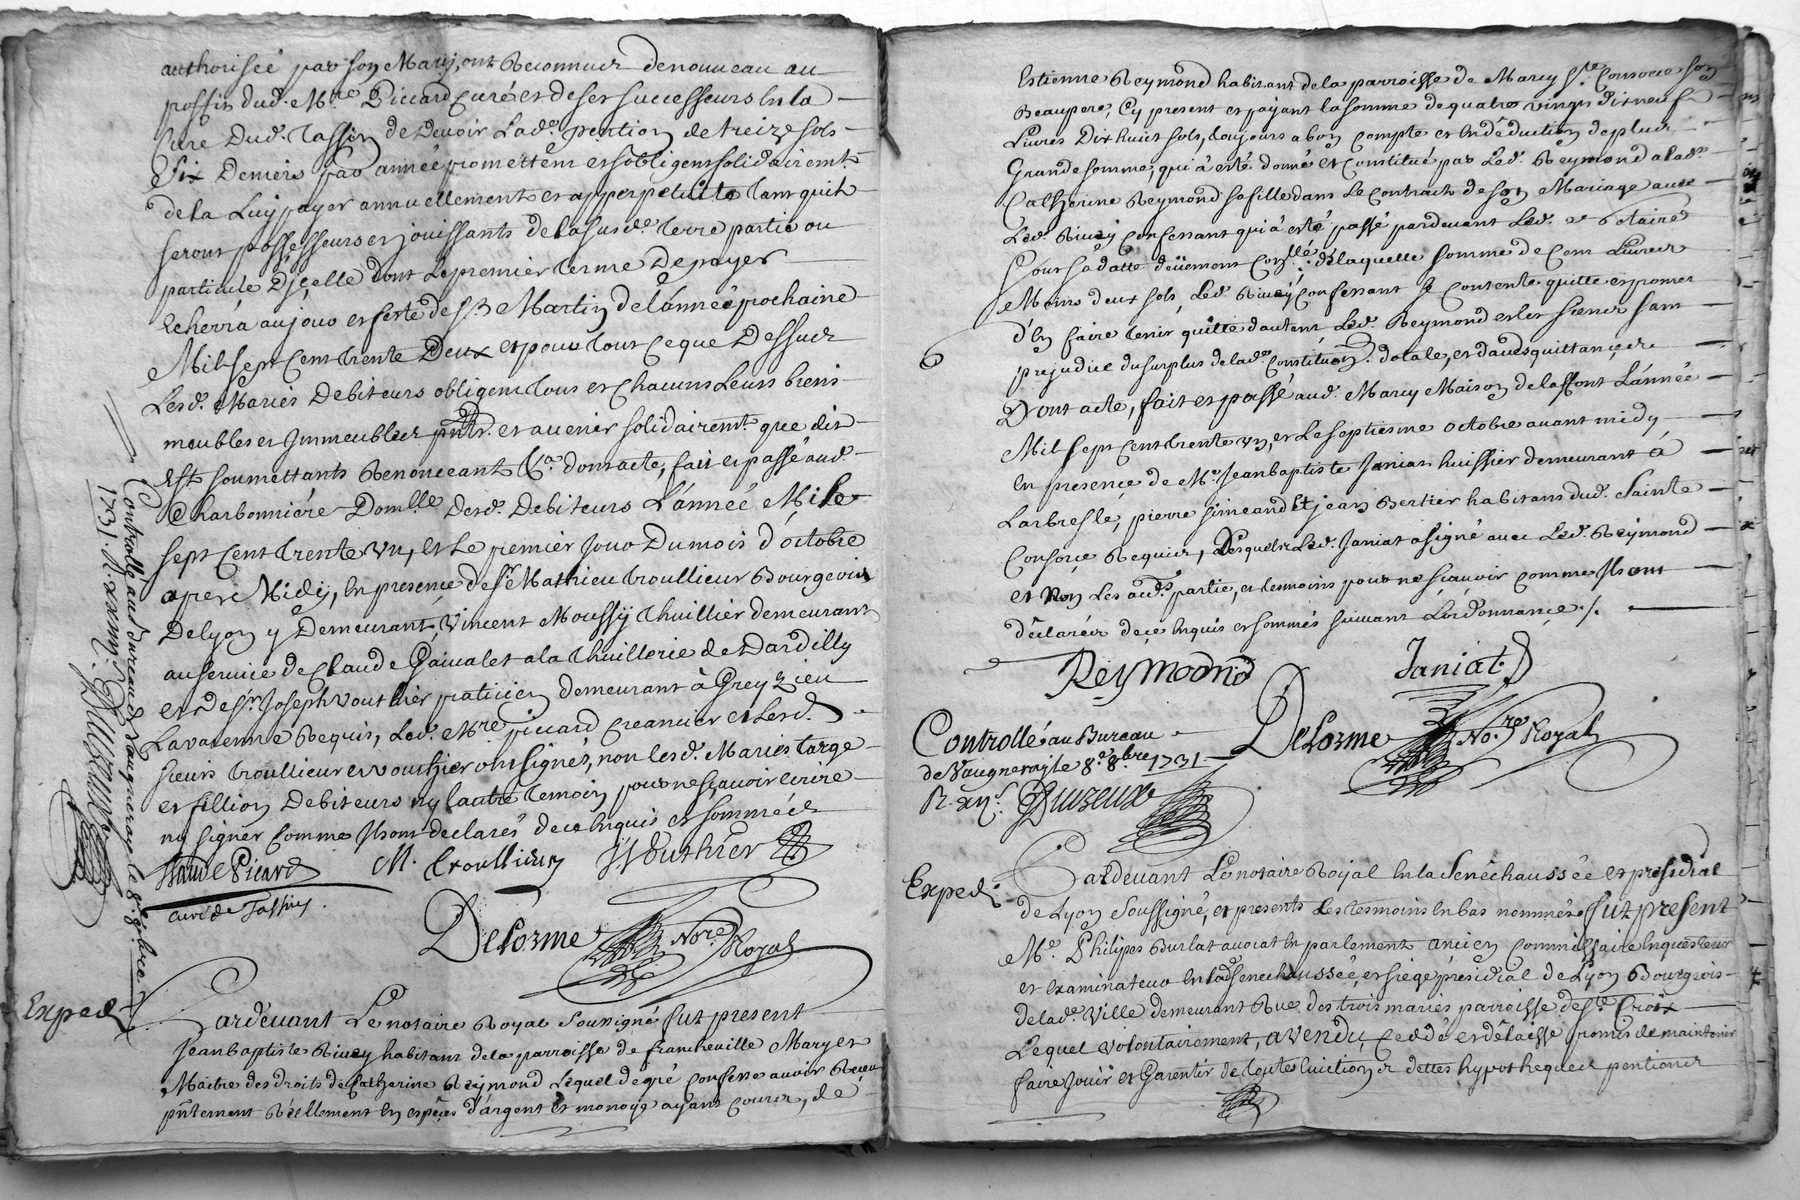 authorisée par son Mary, ont Reconnus denouveau au
proffit dud. Mre. Piccard Curé et de ses successeurs en la
Cure Dud. Tassin de Devoir Lade. pention de treize sols
Six Deniers par année promettent et sobligent solidairemt.
de la Luy payer annuellement et a perpetuité tant quils
seront possesseurs et jouissants de la susde. terre partie ou
particule Dicelle dont Le premier terme De payer
Echerra au jour et feste de St Martin de lannée prochaine
Mil sept Cent trente Deux et pour tout ce que Dessus
Lesd. Mariés Debiteurs obligent tous et Chacuns Leurs biens
meubles et Immeubles pnts. et avenir solidairemt. que dit
Est soumettants Renonceant Ca. dont acte, fait et passé aud.
Charbonniére Domlle. Desd. Debiteurs L'année Mile
sept Cent trente un, et Le premier Jour Du mois d'octobre
apres Midy, en presence de Sr. Mathieu trouillieur Bourgeois
De Lyon y Demeurant, Vincent Moussy thuillier demeurant
au service de Claude Gaivalet a la thuillerie de Dardilly
et de Sr. Joseph vouthier praticien demeurant à Greyzieu
Lavarenne Requis, Led. Mre piccard creancier et Lesd.
sieurs trouillieur et vouthier ont signés, non lesd. Mariés Large
et fillion Debiteurs ny lautre temoin pour ne sçavoir écrire
ny signer Comme Ils ont declarés de ce Enquis et sommés
Claude Picard M. trouillieur J Vouthier
curé de Tassin.
DeLorme Nore. Royal
Controllé aud. bureau de Vaugneray le 8e. 8bre.
1731. R. xxvi s.
Exped.
Pardevant Le notaire Royal Sousigné fut present
Jean baptiste Rivey habitant de la parroisse de francheville Mary et
Maitre des droits de Catherine Reymond Lequel de gré confesse avoir Receu
pntement Réellement en espéces d'argent et monoye ayant Cours, de
Estienne Reymond habitant de la parroisse de Marcy Ste. Consorce son
Beaupere, Cy present et payant la somme de quatre vingts dixneuf
Livres Dix huit sols, toujours a bon compte et En déduction de plus
Grande somme, qui à esté donné et Constitué par Led. Reymond a lade.
Catherine Reymond sa fille dans Le Contract de son Mariage avec
Led. Rivey confessant qui à esté passé pardevant Led. Notaire
Sous sa datte deüement Conllé. de laquelle somme de Cent Livres
Moins deux sols, Led. Rivey Confessant Se Contente quitte et promet
d'En faire tenir quitte dautant Led. Reymond et les Siens sans
prejudice du surplus de lade. Constitution dotale, et dautres quittances
Dont acte, fait et passé aud. Marcy Maison de laffont L'année
Mil sept Cent trente un, et Le septiesme octobre avant midy
en presence de Me. Jean baptiste Janiat huissier demeurant à
Larbresle, pierre simeand Et jean Bertier habitans dud. Sainte
Consorce Requis, Desquels Led. Janiat a signé avec Led. Reymond
et Non Les auds. partie, et temoins pour ne Scavoir comme Ils ont
déclarés de ce Enquis et sommés suivant L'ordonnance ./.
Reymond Janiat
DeLorme Nore. Royal
Controllé au Bureau
de Vaugneray le 8e. 8bre 1731
R. xii s.
Exped.
Pardevant Le notaire Royal En la Senéchaussée et presidial
de Lyon Soussigné, et presents Les tesmoins En bas nommés fut present
Me. Philipes Burlat avocat En parlement ancien Commissaire Enquesteur
et Examinateur En lad. Senechaussée, et siege présidial de Lyon Bourgeois
de lade. Ville demeurant Rue des trois maries parroisse de Ste. Croix
Lequel Volontairement, a vendu, Ceddé et delaissé promis de maintenir
faire Jouir et Garentir de toutes Evictions dettes hypotheques pentions